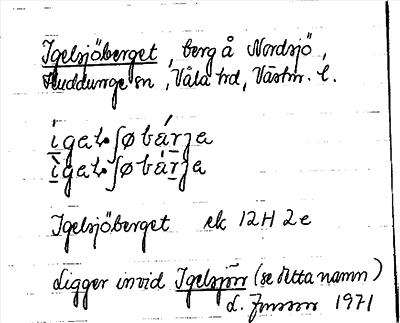 Igelsjöberget, berg å Nordsjö,
Huddunge sn, Våla hd, Västm. l.
ígalsʃøbárja
ìgalsʃøbàrja
Igelsjöberget ek 12H 2e
Ligger invid Igelsjön (se detta namn)
L. Jonsson 1971